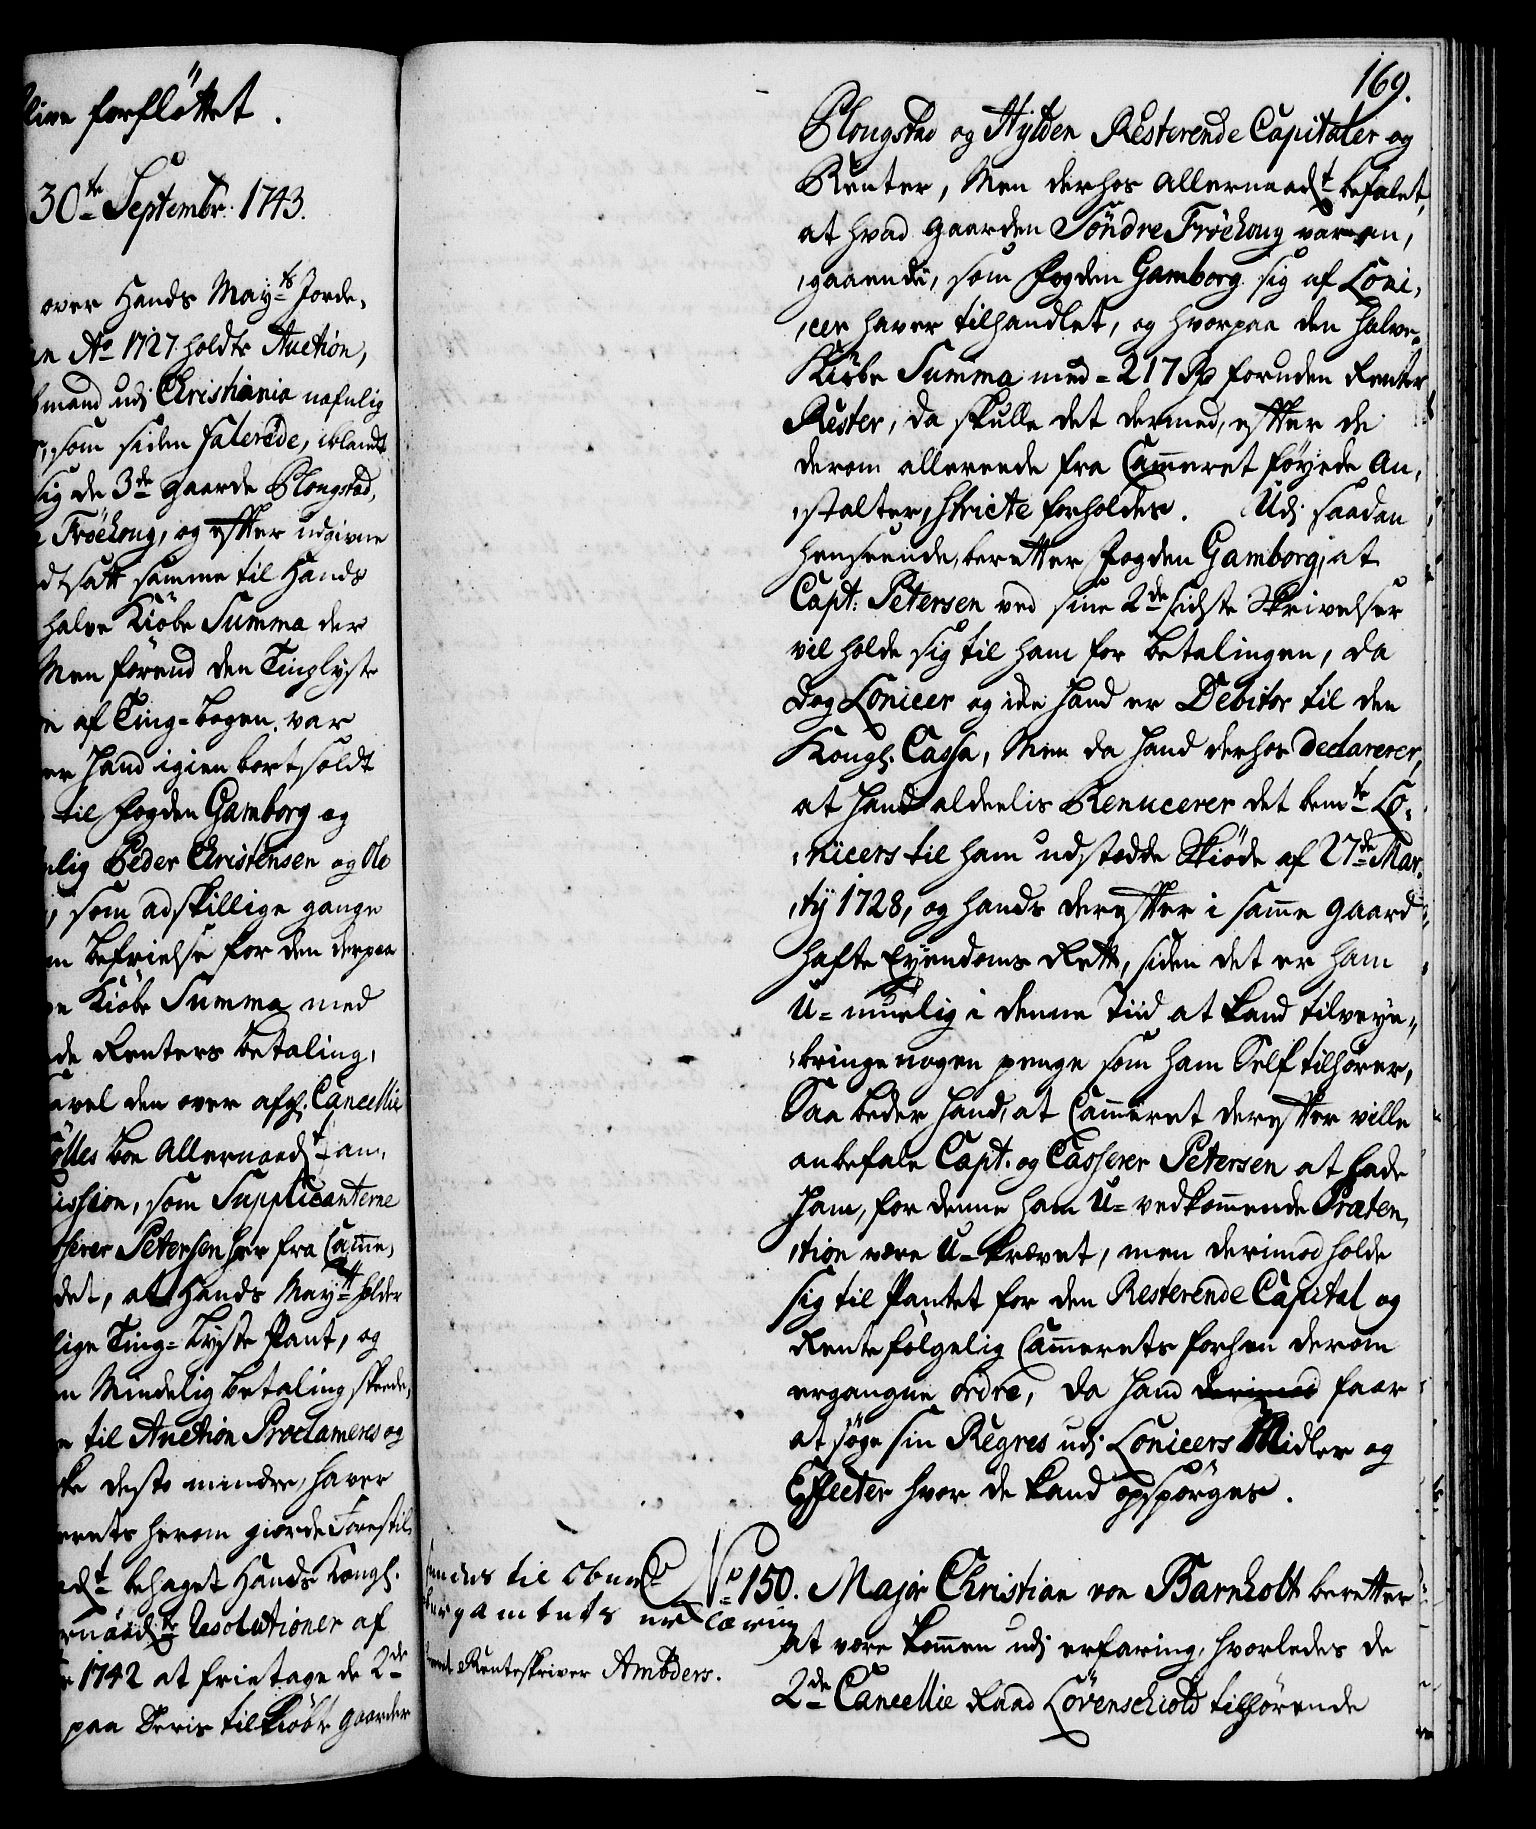 live forfløttet.
30te Septembr. 1743.
over Hands Mayts Jorde,
Ao 1727 holdte Auction,
mand udj Christiania nafnlig
som siden falerede, iblandt
sig de 3de Gaarde Plougstad,
Frøchoug, og effter udgivne
udtsatt samme til Hands
halve Kiöbe Summa der
Men förend den Tinglyste
af Ting-bogen var
Hand igien bortsoldt
til Fogden Gamborg og
Peder Christensen og Ole
som adskillige gange
befrielse for den derpaa
Kiöbe Summa med
Renters betaling,
den over afg. Cancellie
boe Allernaadt an,
som Supplicanterne
Petersen her fra Camme,
det, at Hands Mayt holder
Ting-Lyste Pant, og
Mindelig betaling skeede,
til Auction Proclameres og
desto mindre, haver
herom giorde Forestil,
behaget Hands Kongl.
Resolutioner af
1742 at fritage de 2de
paa Deris tilkiöbte Gaarder
169.
Plougstad og Hylden Resterende Capitaler og
Renter, Men derhos allernaadt befalet,
at hvad Gaarden Söndre Fröchoug var an,
,gaaende, som Fogden Gamborg sig af Loni,
,cer haver tilhandlet, og hvorpaa den halve
Kiöbe Summa med = 217 Rd foruden Renter
Rester, da skulle det dermed, effter de
derom allereede fra Cammeret föyede An,
,stalter, stricte forholdes. Udj saadan
henseende, beretter Fogden Gamborg, at
Capt: Petersen ved sine 2de sidste Skrivelser
vil holde sig til ham for betalingen, da
dog Lonicer og icke hand er Debitor til den
Kongl. Cassa, Men da hand derhos declarerer,
at hand aldeelis Renucerer det bemte Lo,
,nicers til ham udstædde Skiöde af 27de Mar,
,tij 1728, og hands dereffter i samme Gaard
hafte Eyendoms Rett, siden det er ham
U=muelig i denne Tiid at kand tilveye,
,bringe nogen penge som ham Self tilhörer,
Saa beder hand, at Cammeret dereffter ville
anbefale Capt. og Casserer Petersen at lade
ham, for denne ham U=vedkommende Præten,
,tion være U=krævet, men derimod holde
sig til Pantet for den Resterende Capital og
Rente fölgelig Cammerets forhen derom
ergangne ordre, da hand derimod faar
at söge sin Regres udj Lonicers Midler og
Effecter hvor de kand opspörges.
til
Renteskriver Ambders.
No 150. Major Christian von Barnholt beretter
at være kommen udj erfaring, hvorledes de
2de Cancellie Raad Lövenschiold tilhörende